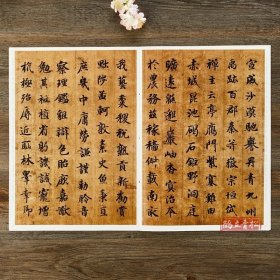 宣威沙漠馳譽丹青九州
禹跡百郡秦并嶽宗恒岱
禪主云亭鴈門紫塞雞田
赤城昆池碣石鉅野洞庭
曠遠綿邈巖岫杳冥治本
於農務茲稼穡俶載南畝
我藝黍稷稅熟貢新勸賞
黜陟孟軻敦素史魚秉直
庶幾中庸勞謙謹勅聆音
察理鑑貌辯色貽厥嘉猷
勉其祗植省躬譏誡寵增
抗極殆辱近恥林皋幸即